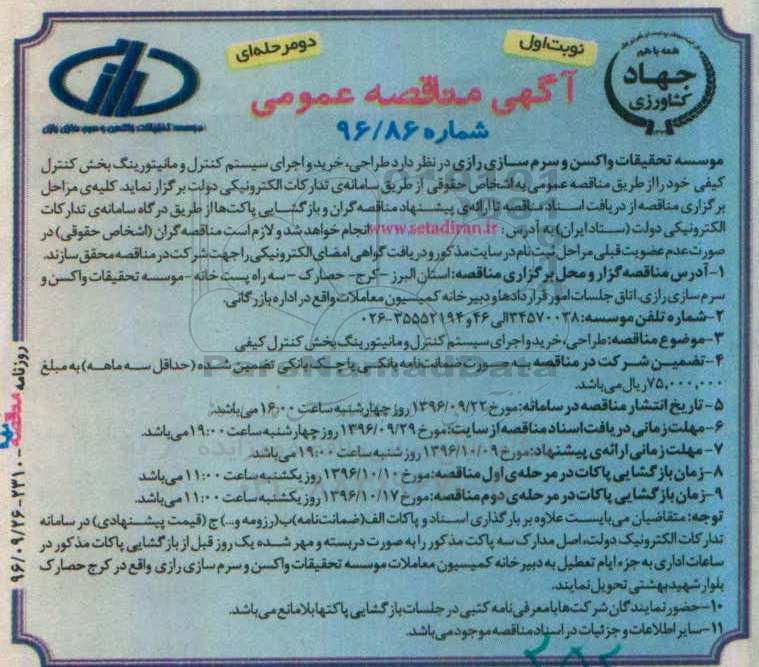 همه با هم
جهاد
کشاورزی
نوبت اول
دو مرحله‌ای
آگهی مناقصه عمومی
شماره ۹۶/۸۶
موسسه تحقیقات واکسن و سرم سازی رازی
موسسه تحقیقات واکسن و سرم سازی رازی در نظر دارد طراحی، خرید و اجرای سیستم کنترل و مانیتورینگ بخش کنترل
کیفی خود را از طریق مناقصه عمومی به اشخاص حقوقی از طریق سامانه‌ی تدارکات الکترونیکی دولت برگزار نماید. کلیه‌ی مراحل
برگزاری مناقصه از دریافت اسناد مناقصه تا ارائه‌ی پیشنهاد مناقصه گران و بازگشایی پاکت‌ها از طریق درگاه سامانه‌ی تدارکات
الکترونیکی دولت (ستاد ایران) به آدرس: www.setadiran.ir انجام خواهد شد و لازم است مناقصه گران (اشخاص حقوقی) در
صورت عدم عضویت قبلی مراحل ثبت نام در سایت مذکور و دریافت گواهی امضای الکترونیکی را جهت شرکت در مناقصه محقق سازند.
۱-آدرس مناقصه گزار و محل برگزاری مناقصه: استان البرز -کرج- حصارک -سه راه پست خانه-موسسه تحقیقات واکسن و
سرم سازی رازی، اتاق جلسات امور قراردادها و دبیرخانه کمیسیون معاملات واقع در اداره بازرگانی.
۲-شماره تلفن موسسه: ۳۴۵۷۰۰۳۸ الی ۴۶ و ۳۵۵۵۲۱۹۴-۰۲۶
۳-موضوع مناقصه: طراحی، خرید و اجرای سیستم کنترل و مانیتورینگ بخش کنترل کیفی
۴-تضمین شرکت در مناقصه به صورت ضمانت‌نامه بانکی یا چک بانکی تضمین شده (حداقل سه ماهه) به مبلغ
۷۵,۰۰۰,۰۰۰ ریال می‌باشد.
۵- تاریخ انتشار مناقصه در سامانه: مورخ ۱۳۹۶/۰۹/۲۲ روز چهارشنبه ساعت ۱۶:۰۰ می‌باشد.
۶-مهلت زمانی دریافت اسناد مناقصه از سایت: مورخ ۱۳۹۶/۰۹/۲۹ روز چهارشنبه ساعت ۱۹:۰۰ می‌باشد.
۷- مهلت زمانی ارائه‌ی پیشنهاد: مورخ ۱۳۹۶/۱۰/۰۹ روز شنبه ساعت ۱۹:۰۰ می‌باشد
۸-زمان بازگشایی پاکات در مرحله‌ی اول مناقصه: مورخ ۱۳۹۶/۱۰/۱۰ روز یکشنبه ساعت ۱۱:۰۰ می‌باشد
۹-زمان بازگشایی پاکات در مرحله‌ی دوم مناقصه: مورخ ۱۳۹۶/۱۰/۱۷ روز یکشنبه ساعت ۱۱:۰۰ می‌باشد.
توجه: متقاضیان می‌بایست علاوه بر بارگذاری اسناد و پاکات الف(ضمانت‌نامه) ب(رزومه و...) ج (قیمت پیشنهادی) در سامانه
تدارکات الکترونیک دولت، اصل مدارک سه پاکت مذکور را به صورت دربسته و مهر شده یک روز قبل از بازگشایی پاکات مذکور در
ساعات اداری به جزء ایام تعطیل به دبیرخانه کمیسیون معاملات موسسه تحقیقات واکسن و سرم سازی رازی واقع در کرج حصارک
بلوار شهید بهشتی تحویل نمایند.
۱۰-حضور نمایندگان شرکت‌ها با معرفی نامه کتبی در جلسات بازگشایی پاکتها بلامانع می‌باشد.
۱۱-سایر اطلاعات و جزئیات در اسناد مناقصه موجود می‌باشد.
روزنامه مناقصه -۲۳۱۰- ۹۶/۰۹/۲۶
ParsNamadData